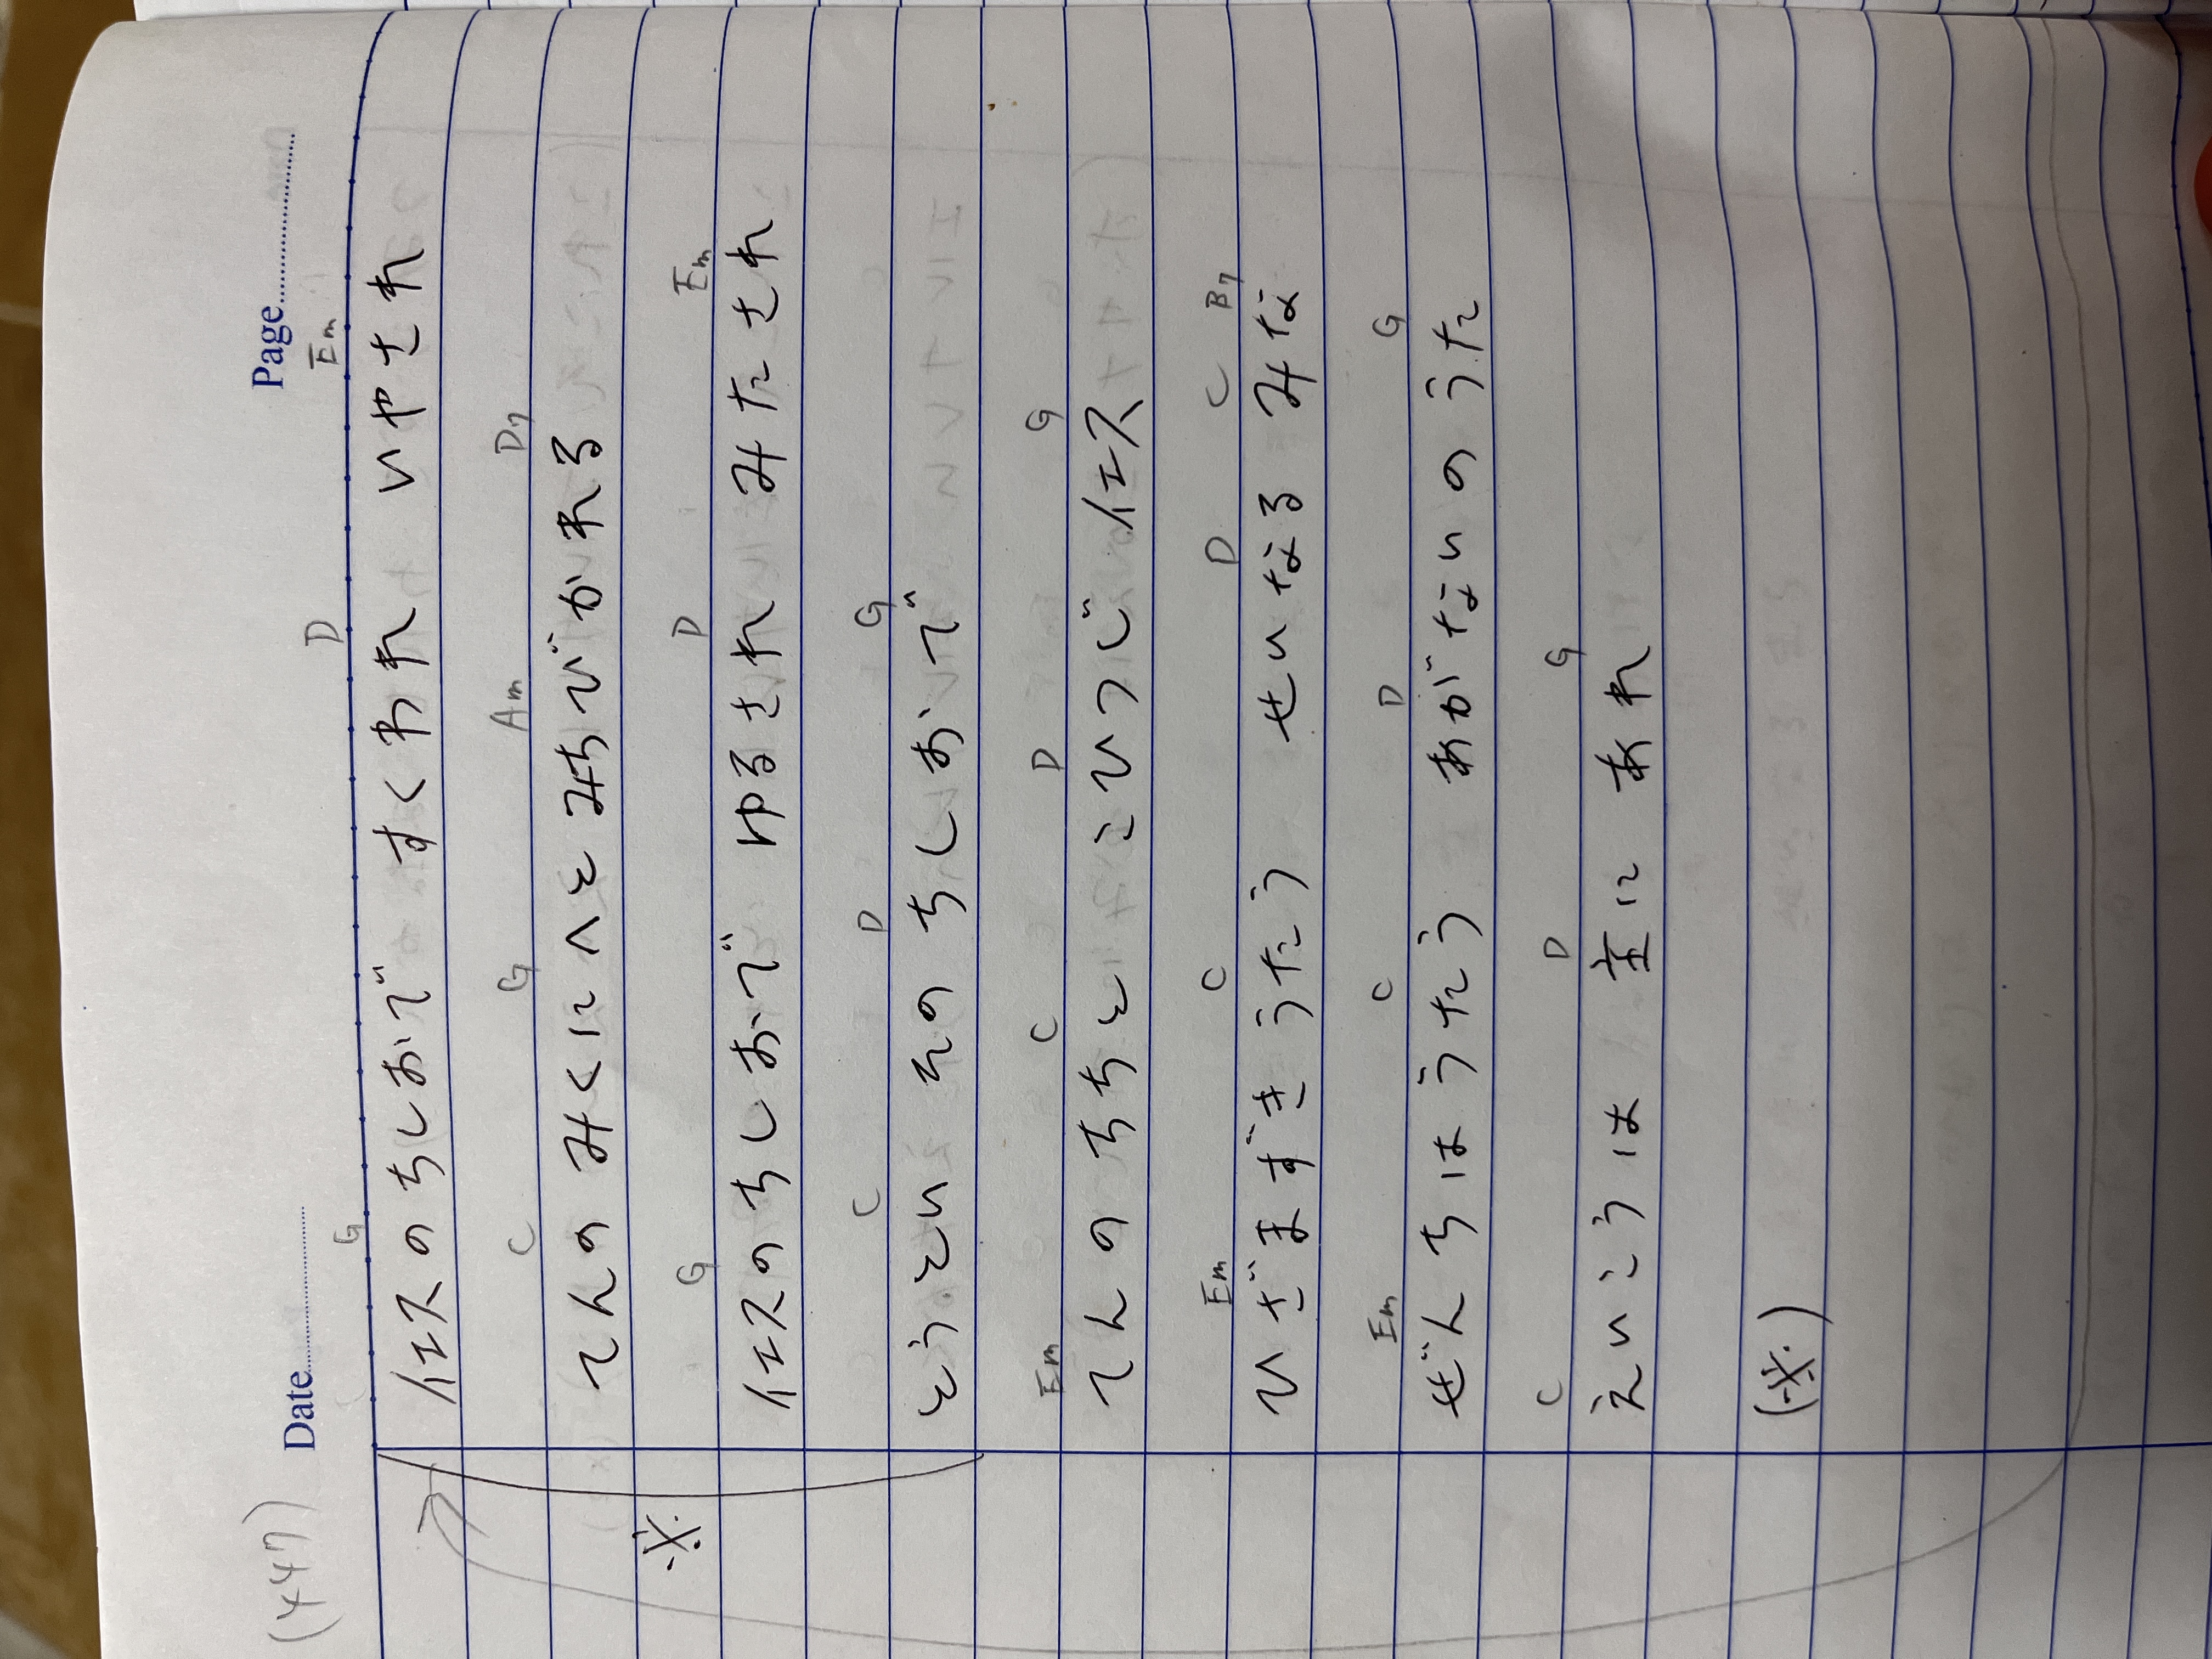 (447)
Date
Page
G D Em
イエスのちしおで すくわれ いやされ
C G Am D7
てんの みくにへと みちびかれる
G D Em
※ イエスのちしおで ゆるされ みたされ
C D G
とうとい そのちしおで
Em C D G
てんのちちと こひつじ イエス
Em C D C B7
ひざまずき うたう せいなる みな
Em C D G
ぜんちは うたう あがないのうた
C D G
えいこうは 主に あれ
(※)